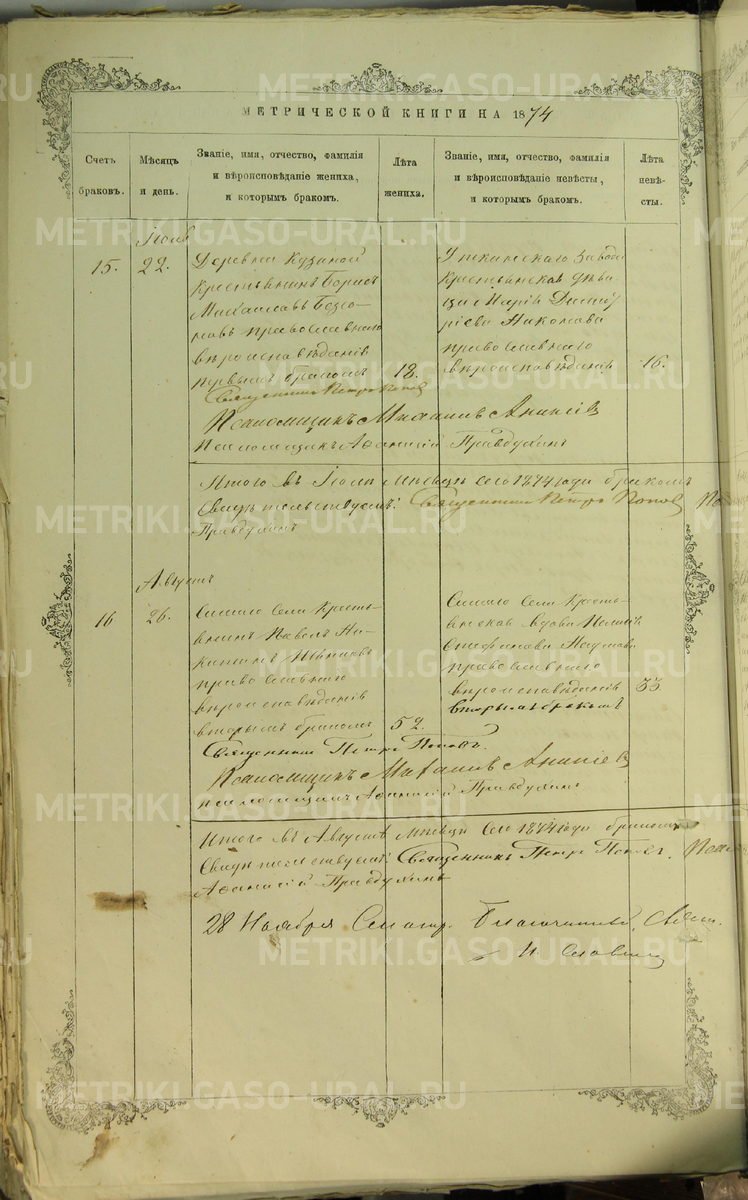 МЕТРИЧЕСКОЙ КНИГИ НА 1874
Счетъ браковъ.
Мѣсяцъ и день.
Званіе, имя, отчество, фамилія
и вѣроисповѣданіе жениха,
и которымъ бракомъ.
Лѣта жениха.
Званіе, имя, отчество, фамилія
и вѣроисповѣданіе невѣсты,
и которымъ бракомъ.
Лѣта невѣ-
сты.
Іюль
15.
22.
Деревни Кузиной
крестьянинъ Борисъ
Михайловъ
православнаго
вѣроисповѣданія
первымъ бракомъ
18.
Уткинскаго завода
крестьянская дѣви-
ца Марія Димит-
ріева Николаева
православнаго
вѣроисповѣданія
16.
Священникъ Петръ Поповъ
Псаломщикъ Михаилъ Аникіев
Псаломщикъ Афанасій Правдухинъ
Итого въ Іюлѣ мѣсяцѣ сего 1874 года бракомъ
Свидѣтельствуемъ: Священникъ Петръ Поповъ
Правдухинъ
Августъ
16
26.
Самаго села кресть-
янинъ Павелъ Ни-
китинъ
православнаго
вѣроисповѣданія
вторымъ бракомъ
52.
Самаго села кресть-
янская вдова
Стефанова Наумова
православнаго
вѣроисповѣданія
вторымъ бракомъ
35
Священникъ Петръ Поповъ.
Псаломщикъ Михаилъ Аникіев
псаломщикъ Афанасій Правдухинъ
Итого въ Августѣ мѣсяцѣ сего 1874 года бракомъ
Свидѣтельствуемъ: Священникъ Петръ Поповъ.
Афанасій Правдухинъ
28 Ноября Смотр. Благочинный,
METRIKI.GASO-URAL.RU